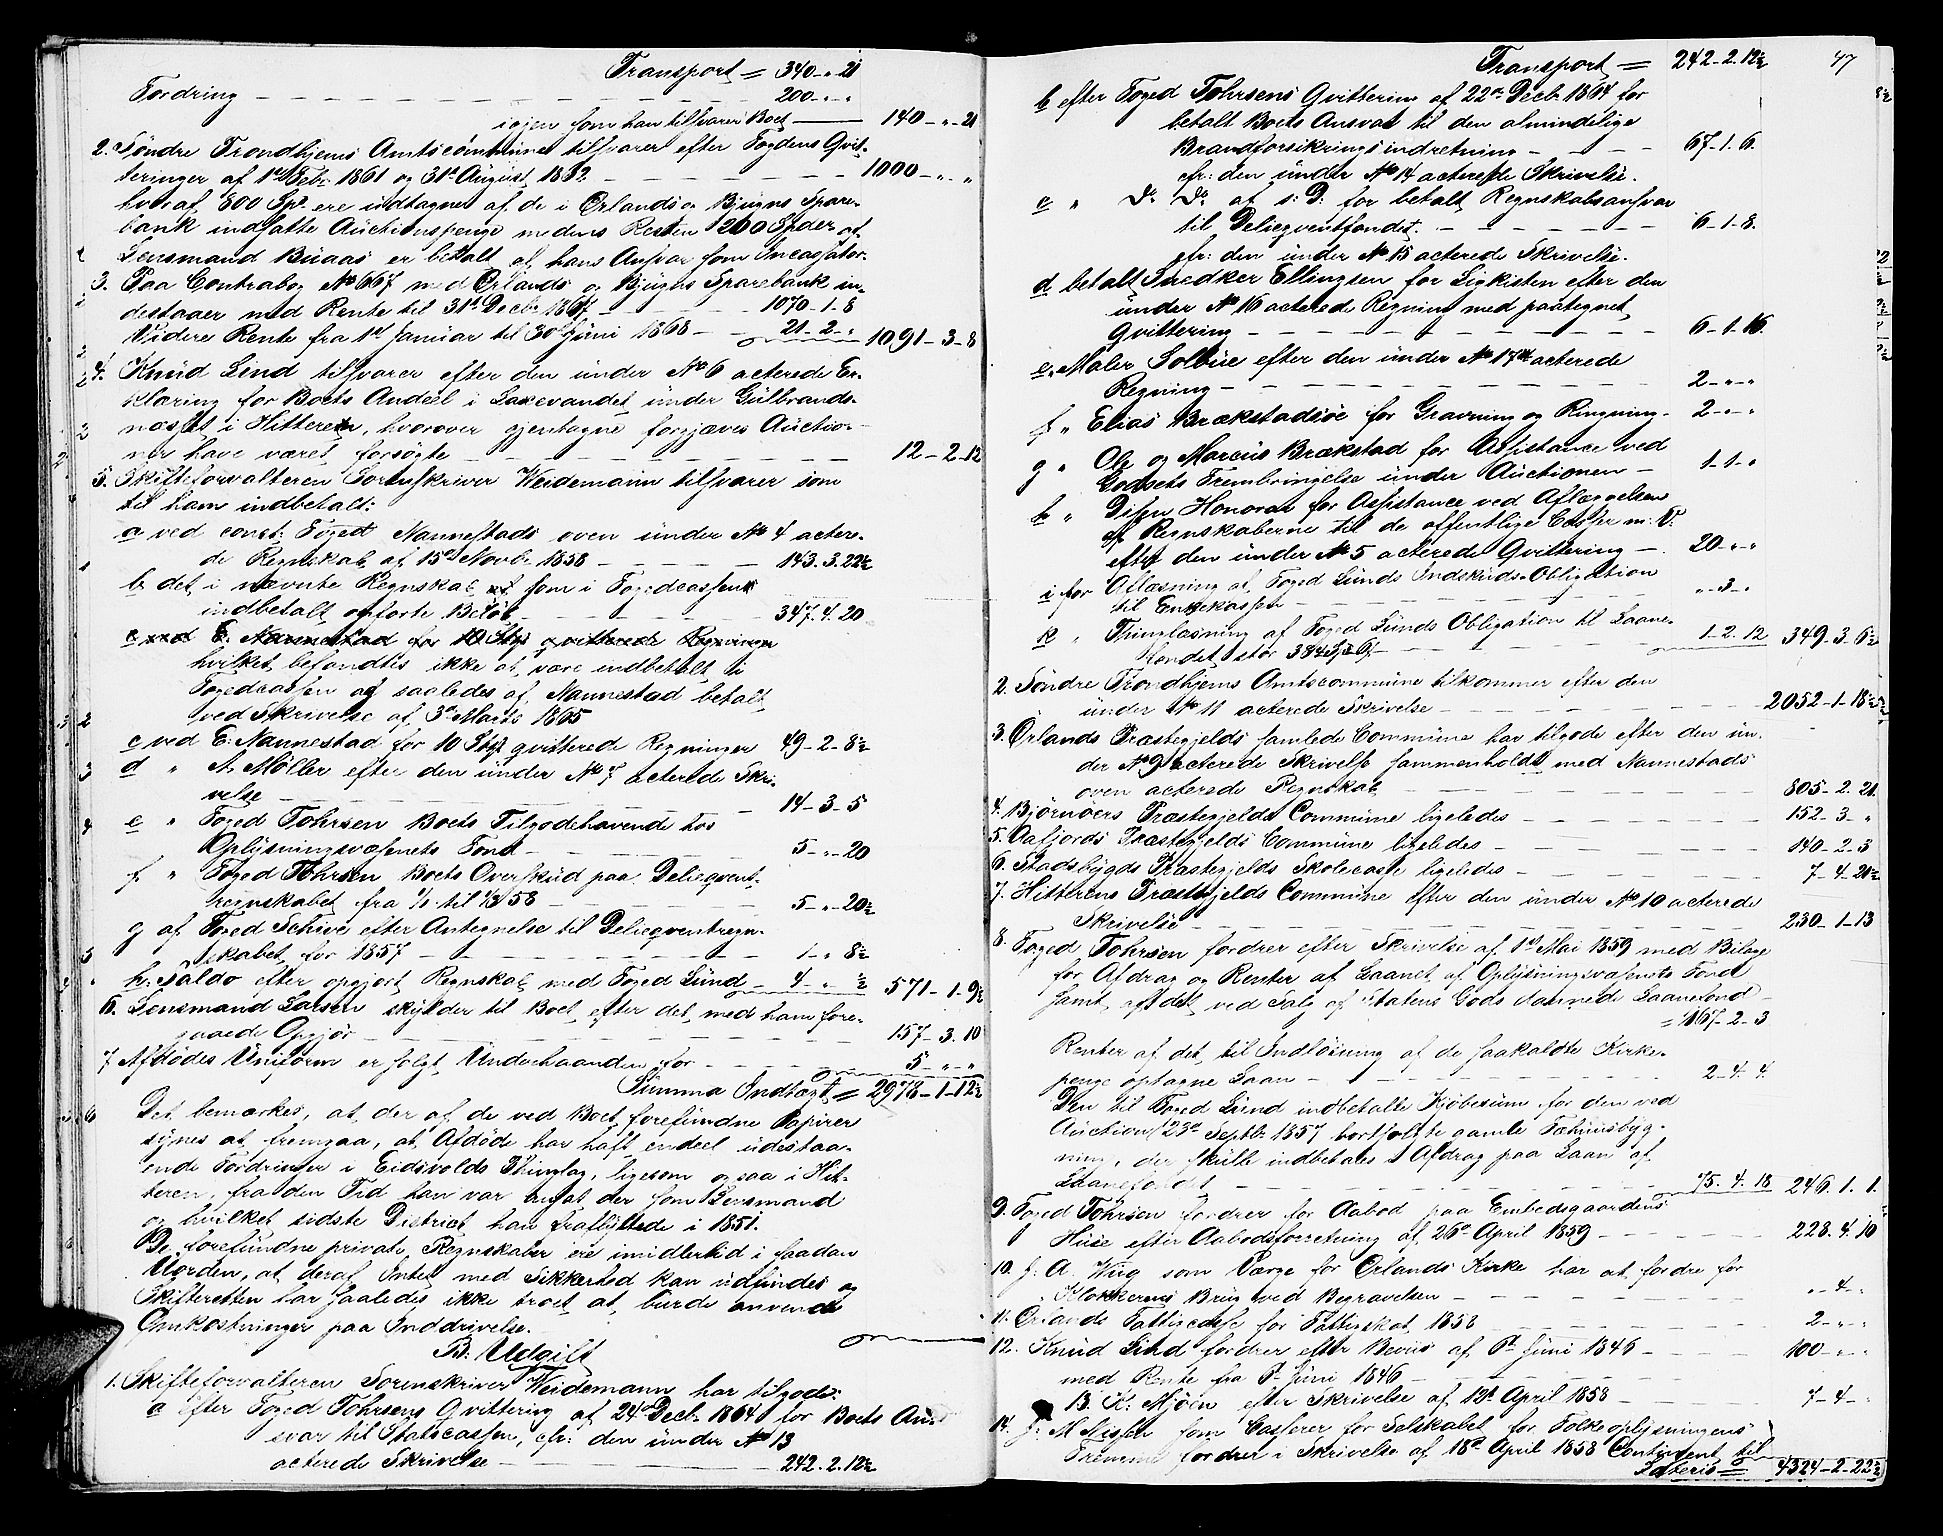 Transport = 340 - „ 21
Fordring - - - 200 - „ „
igjen som han tilsvarer Boet - 140 - „ - 21
2. Søndre Trondhjems Amtscommune tilsvarer efter Fogdens Qvit-
teringer af 1ste Febr. 1861 og 31te August 1862 - - 1000 - „ - „
hvoraf 800 Spd. ere indtagne af de i Ørlands og Bjugns Spare-
bank indsatte Auctionspenge medens Resten 200 Spdr af
Lensmand Buaas er betalt af hans Ansvar som Incassator.
3. Paa Contrabog No 667 med Ørlands og Bjugns Sparebank in-
destaaer med Rente til 31te Decbr 1867 - - 1070 - 1 - 8
Videre Rente fra 1ste Januar til 30te Juni 1868 - - 21 - 2 - „ 1091 - 3 - 8
4. Knud Lind tilsvarer efter den under No 6 acterede Er-
klæring for Boets Andeel i Laxevandet under Gulbrands-
næsset i Hitteren, hvorover gjentagne forgjæves Auctio-
ner have været forsøgte - - - 12 - 2 - 12
5. Skifteforvalteren Sorenskriver Weidemann tilsvarer som
til ham indbetalt:
a ved const. Foged Nannestads oven under No 4 actere-
de Regnskab af 15de Novbr 1858 - - 143. 3. 22½
b det i nævnte Regnskab som i Fogedcassen
indbetalt opførte Beløb - - 347. 4. 20
c ved E. Nannestad for 10 Stkr qvitterede Regninger
hvilket befandtes ikke at være indbetalt i
Fogedcassen og saaledes af Nannestad betalt
ved Skrivelse af 3die Marts 1865
c ved E. Nannestad for 10 Stkr qvitterede Regninger 49 - 2 - 8½
d „ A. Møller efter den under No 7 acterede Skri-
velse - - - 14 - 3 - 5
e „ Foged Tohrsen Boets Tilgodehavende hos
Oplysningsvæsenets Fond - - 5 - „ - 20
f. „ Foged Tohrsen Boets Overskud paa Delieqvent-
regnskabet fra 1/1 til 58 - - 5 - „ - 20½
g af Foged Schive efter Antegnelse til Delieqventregn-
skabet for 1857 - - 1 - „ 8½
h. Saldo efter opgjort Regnskab med Foged Lund - 4 - „ ½ 571 - 1 - 9½
6. Lensmand Larsen skylder til Boet efter det med ham fore-
tagede Opgjør - - 157 - 3 - 10
7 Afdødes Uniform er solgt Underhaanden for - - 5 - „ - „
Summa Indtægt = 2978 - 1 - 12½
Det bemærkes, at der af de ved Boet forefundne Papirer
synes at fremgaa, at Afdøde har haft endeel udestaa-
ende Fordringer i Eidsvolds Thinglag, ligesom ogsaa i Hit-
teren, fra den Tid han var ansat der som Lensmand
og hvilket sidste District han fraflyttede i 1851.
De forefundne private Regnskaber ere imidlertid i saadan
Uorden, at deraf Intet med Sikkerhed kan udfindes og
Skifteretten har saaledes ikke troet at burde anvende
Omkostninger paa Inddrivelse.
B: Udgift
1. Skifteforvalteren Sorenskriver Weidemann har tilgode:
a Efter Foged Tohrsens Qvittering af 24de Decbr 1864 for Boets An-
svar til Statscassen, cfr: den under No 13
acterede Skrivelse - - 242. 2. 12½
47
Transport = 242 - 2. 12½
b efter Foged Tohrsens Qvittering af 22de Decbr 1864 for
betalt Boets Ansvar til den almindelige
Brandforsikringsindretning - - 67 - 1. 6.
cfr: den under No 14 acterede Skrivelse.
c „ Do Do af s: D: for betalt Regnskabsansvar
til Delieqventfondet. - - 6 - 1 - 8.
cfr: den under No 15 acterede Skrivelse.
d betalt Snedker Ellingsen for Ligkisten efter den
under No 16 acterede Regning med paategnet
Qvittering - - 6 - 1 - 16
e. Maler Solbue efter den under No 17 acterede
Regning - - 2 - „ - „
f „ Elias Brækstadsøe for Gravning og Ringning - 2 - „ - „
g „ Ole og Marcus Brækstad for Assistance ved
Godsets Frembringelse under Auctionen - 1 - 1 - „
h „ Disses Honorar for Assistance ved Aflæggelsen
af Regnskaberne til de offentlige Casser m: V:
efter den under No 5 acterede Qvittering - 20 - „ - „
i for Aflæsning af Foged Lunds Indskuds-Obligation
til Enkekassen - - „ - 3 - „
k „ Thinglæsning af Foged Lunds Obligation til Laane-
fondet stor - - 1 - 2. 12 349 - 3. 6½
2. Søndre Trondhjems Amtscommune tilkommer efter den
under No 11 acterede Skrivelse - - 2052 - 1 - 18½
3. Ørlands Præstegjelds samlede Commune har tilgode efter den un-
der No 9 acterede Skrivelse sammenholdt med Nannestads
oven acterede Regnskab - - 805 - 2. 21
4. Bjørnørs Præstegjelds Commune ligeledes - - 152 - 3 - „
5. Aafjords Præstegjelds Commune ligeledes - - 140 - 2 - 3
6. Stadsbygds Præstegjelds Skolecasse ligeledes - - 7 - 4 - 21½
7. Hitterens Præstegjelds Commune efter den under No 10 acterede
Skrivelse - - 230 - 1 - 13
8. Foged Tohrsen fordrer efter Skrivelse af 1ste Mai 1859 med Bilage
for Afdrag og Renter af Laanet af Oplysningsvæsenets Fond
samt af det ved Salg af Statens Gods dannede Laanefond -
= 167 - 2 - 3
Renter af det til Indløsning af de saakaldte Kirke-
penge optagne Laan - - 2 - 4. 4.
Den til Foged Lund indbetalte Kjøbesum for den ved
Auction 23de Septbr 1857 bortsolgte gamle Fæhuusbyg-
ning, der skulle indbetales i Afdrag paa Laan af
Laanefondet - - 75. 4. 18 246. 1. 1.
9. Foged Tohrsen fordrer for Aabod paa Embedsgaardens
Huse efter Aabodsforretning af 26de April 1859 - - 228. 4. 10
10. J. A. Wiig som Værge for Ørlands Kirke har at fordre for
Klokkernes Brug ved Begravelsen - - „ - 4 - „
11. Ørlands Fattigcasse for Fattigskat 1858 - - 2 - „ - „
12. Knud Lind fordrer efter Beviis af 1ste Juni 1846 - - 100 - „ - „
med Rente fra 1ste Juni 1846 - -
13. K. Mjøen efter Skrivelse af 12te April 1858 - - 7 - 4 - „
14. J. M. Nissen som Casserer for Selskabet for Folkeoplysningens
Fremme fordrer i Skrivelse af 18de April 1858 Contingent til
Lateris = 4324 - 2 - 22½